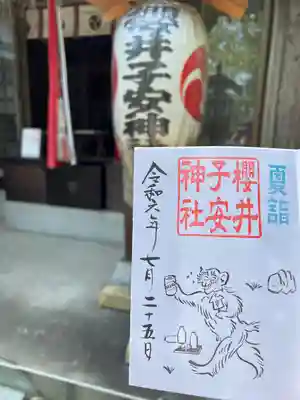 櫻井子安神社
夏詣
櫻井
子安
神社
令和六年 七月 二十五日